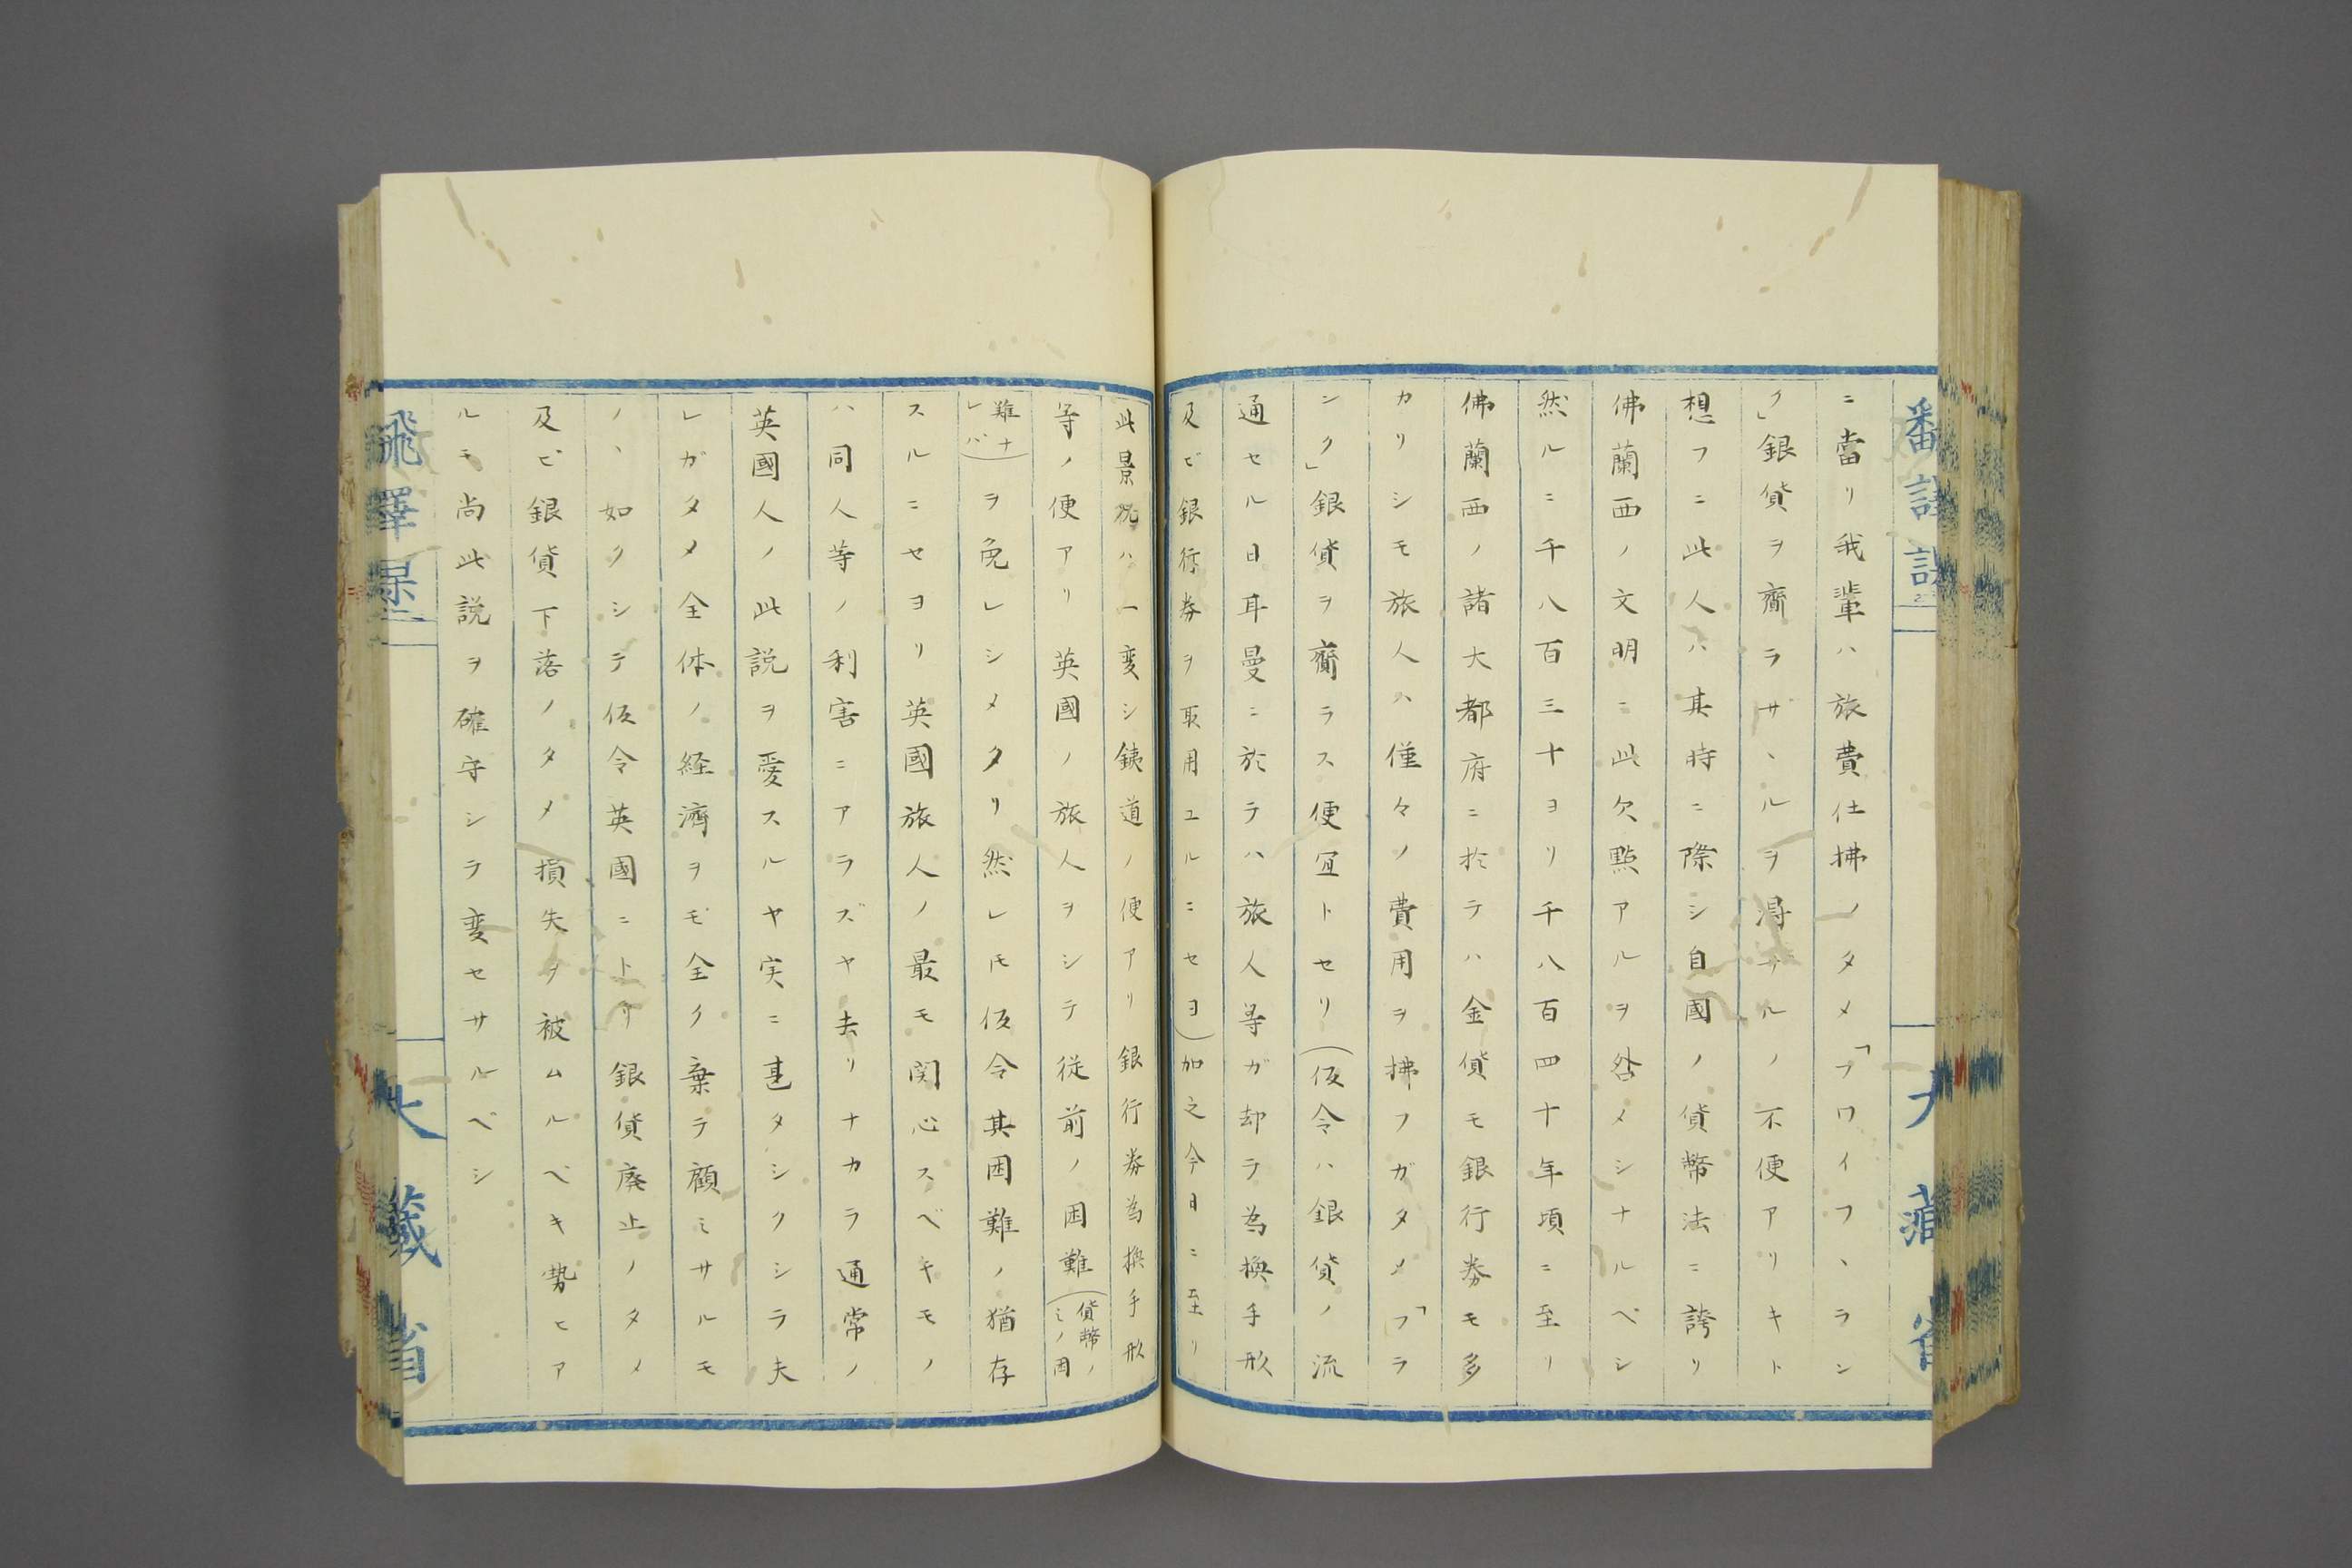 ニ當リ我輩ハ旅費仕拂ノタメ「フワイフ、ラン
ク」銀貨ヲ齎ラザヽルヲ得サルノ不便アリキト
想フニ此人ハ其時ニ際シ自國ノ貨幣法ニ誇リ
佛蘭西ノ文明ニ此欠㸃アルヲ咎メシナルベシ
然ルニ千八百三十ヨリ千八百四十年頃ニ至リ
佛蘭西ノ諸大都府ニ於テハ金貨モ銀行券モ多
カリシモ旅人ハ僅々ノ費用ヲ拂フガタメ「フラ
ンク」銀貨ヲ齎ラス便宜トセリ(仮令ハ銀貨ノ流
通セル日耳曼ニ於テハ旅人等ガ却テ為換手形
及ビ銀行券ヲ取用ユルニセヨ)加之今日ニ至リ
此景况ハ一変シ銕道ノ便アリ銀行券為換手形
等ノ便アリ英國ノ旅人ヲシテ従前ノ困難(貨幣ノミノ困
難ナレバ)ヲ免レシメタリ然レ𪜈仮令其困難ノ猶存
スルニセヨリ英國旅人ノ最モ関心スベキモノ
ハ同人等ノ利害ニアラズヤ去リナカラ通常ノ
英國人ノ此説ヲ愛スルヤ実ニ甚タシクシラ夫
レガタメ全体ノ経濟ヲモ全ク棄テ顧ミサルモ
ノヽ如クシテ仮令英國ニトリ銀貨廃止ノタメ
及ビ銀貨下落ノタメ損失ヲ被ムルベキ勢ヒア
ルモ尚此説ヲ確守シラ変セサルベシ
大藏省